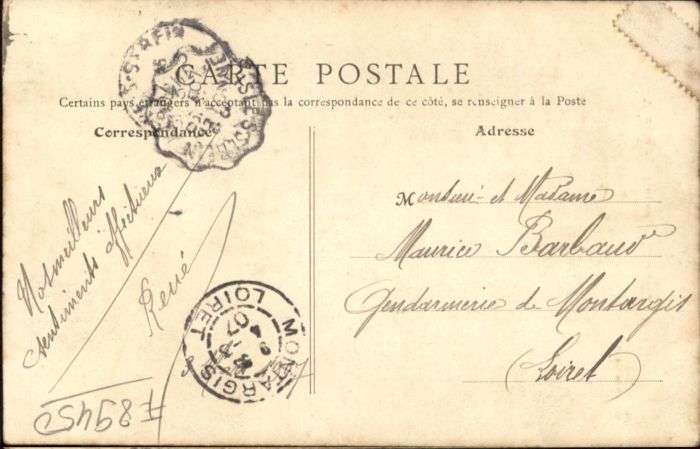 CARTE POSTALE
Certains pays étrangers n'acceptant pas la correspondance de ce côté, se renseigner à la Poste
Correspondance
Adresse
Nos meilleurs
sentiments affectueux
René
Monsieur et Madame
Maurice Barbaud
Gendarmerie de Montargis
(Loiret)
MONTARGIS
LOIRET
07